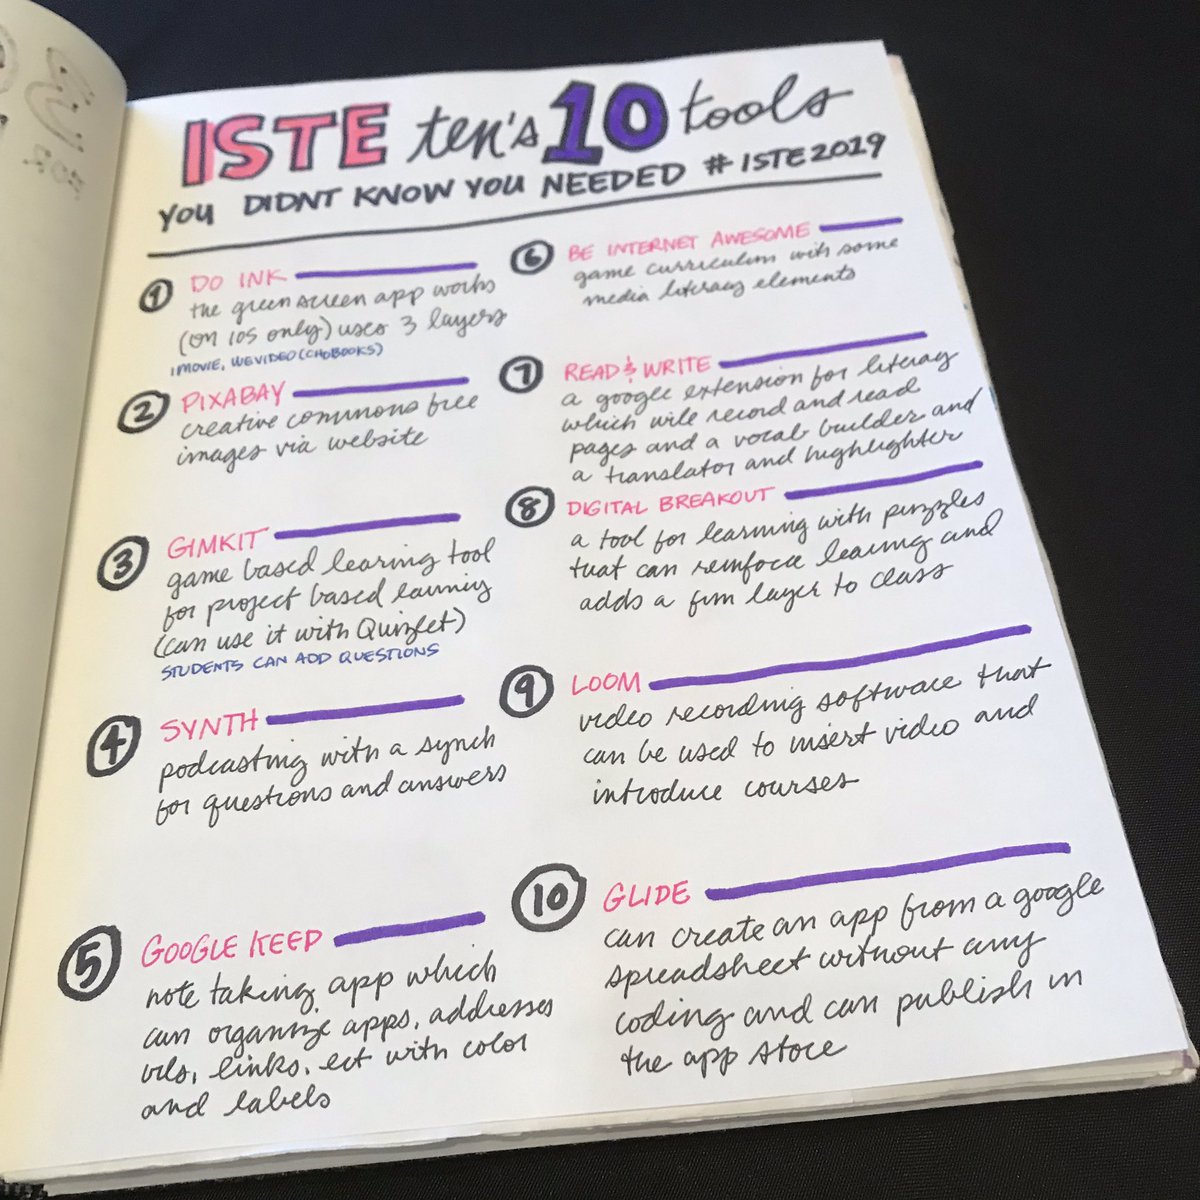 ISTE ten's 10 tools
YOU DIDNT KNOW YOU NEEDED #ISTE2019
1 DO INK
the green screen app works
(on ios only) uses 3 layers
IMOVIE, WEVIDEO (CHOBOOKS)
2 PIXABAY
creative commons free
images via website
3 GIMKIT
game based learing tool
for project based learning
(can use it with Quizlet)
STUDENTS CAN ADD QUESTIONS
4 SYNTH
podcasting with a synch
for questions and answers
5 GOOGLE KEEP
note taking app which
can organize apps, addresses
urls, links, ect with color
and labels
6 BE INTERNET AWESOME
game curriculum with some
media literacy elements
7 READ & WRITE
a google extension for literacy
which will record and read
pages and a vocab builder and
a translator and highlighter
8 DIGITAL BREAKOUT
a tool for learning with puzzles
that can reinforce learing and
adds a fun layer to class
9 LOOM
video recording software that
can be used to insert video and
introduce courses
10 GLIDE
can create an app from a google
spreadsheet without any
coding and can publish in
the app store